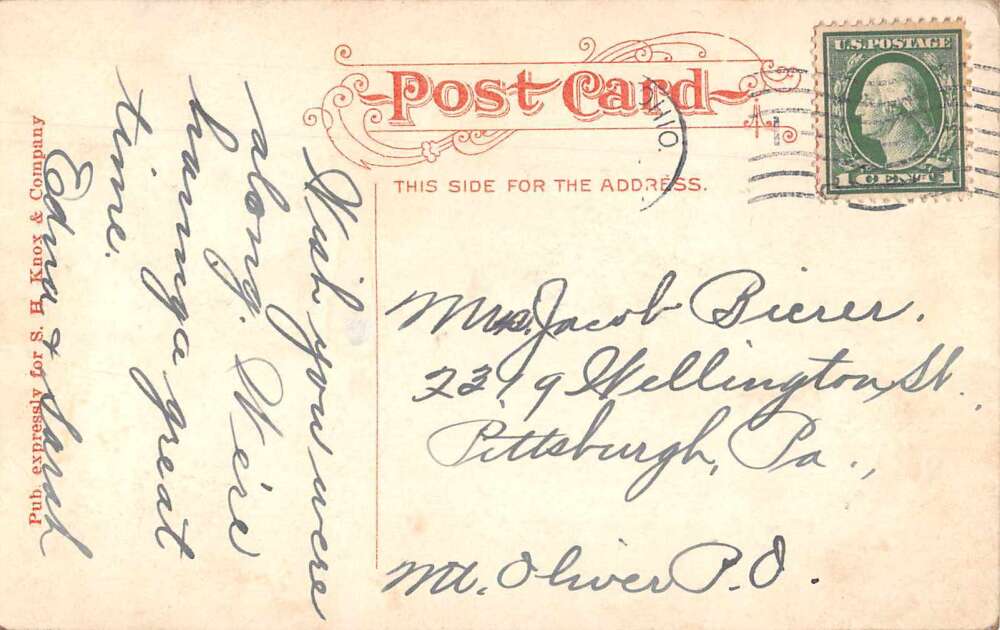 Post Card
THIS SIDE FOR THE ADDRESS.
U.S. POSTAGE
1 CENT 1
OHIO.
Wish you were
along. Weire
having a great
time.
Edna & Sarah
Mrs. Jacob Bierer.
2319 Wellington St.
Pittsburgh, Pa.,
Mt. Oliver P.O.
Pub. expressly for S. H. Knox & Company